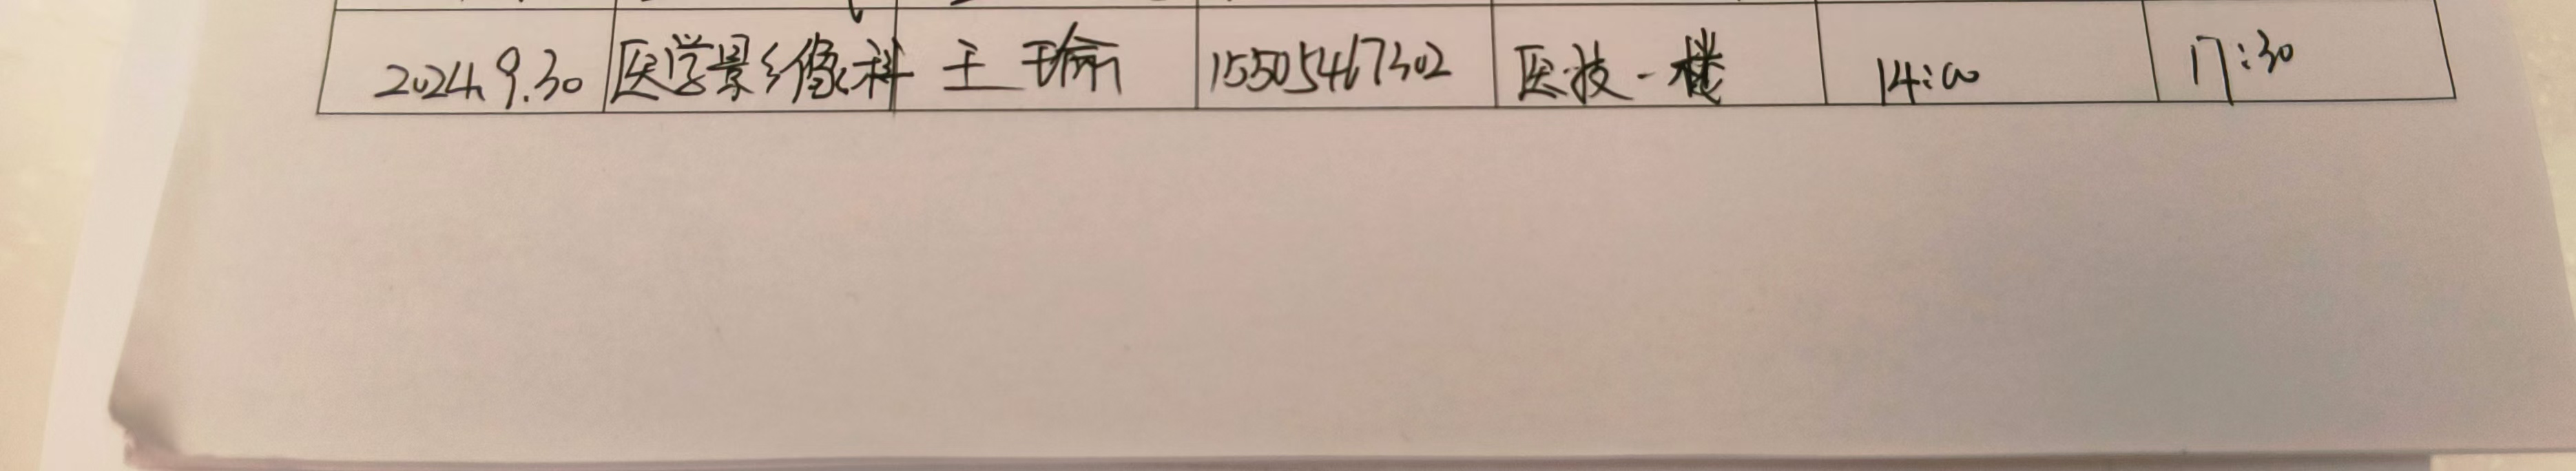 2024.9.30 医学影像科 王瑜 15505467302 医技一楼 14:00 17:30